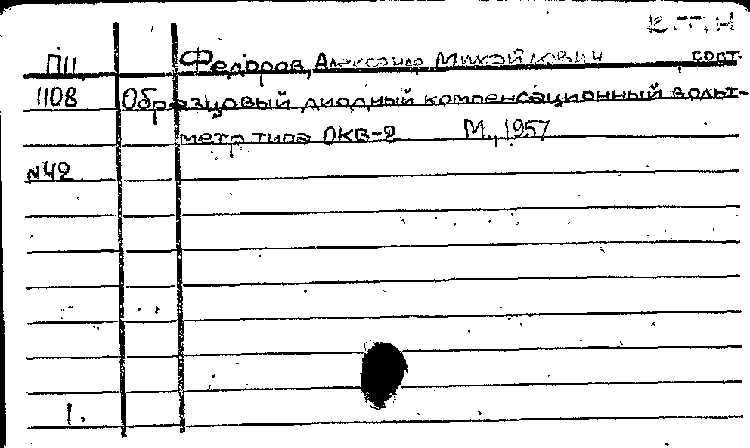 П11 Федоров, Александр Михайлович, сост.
1108 Образцовый диодный компенсационный вольт-
метр типа ОКВ-2 М., 1957
№42
1.